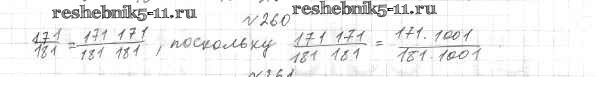 reshebnik5-11.ru reshebnik5-11.ru
№260
171/181 = 171 171/181 181, поскольку 171 171/181 181 = 171·1001/181·1001
№261